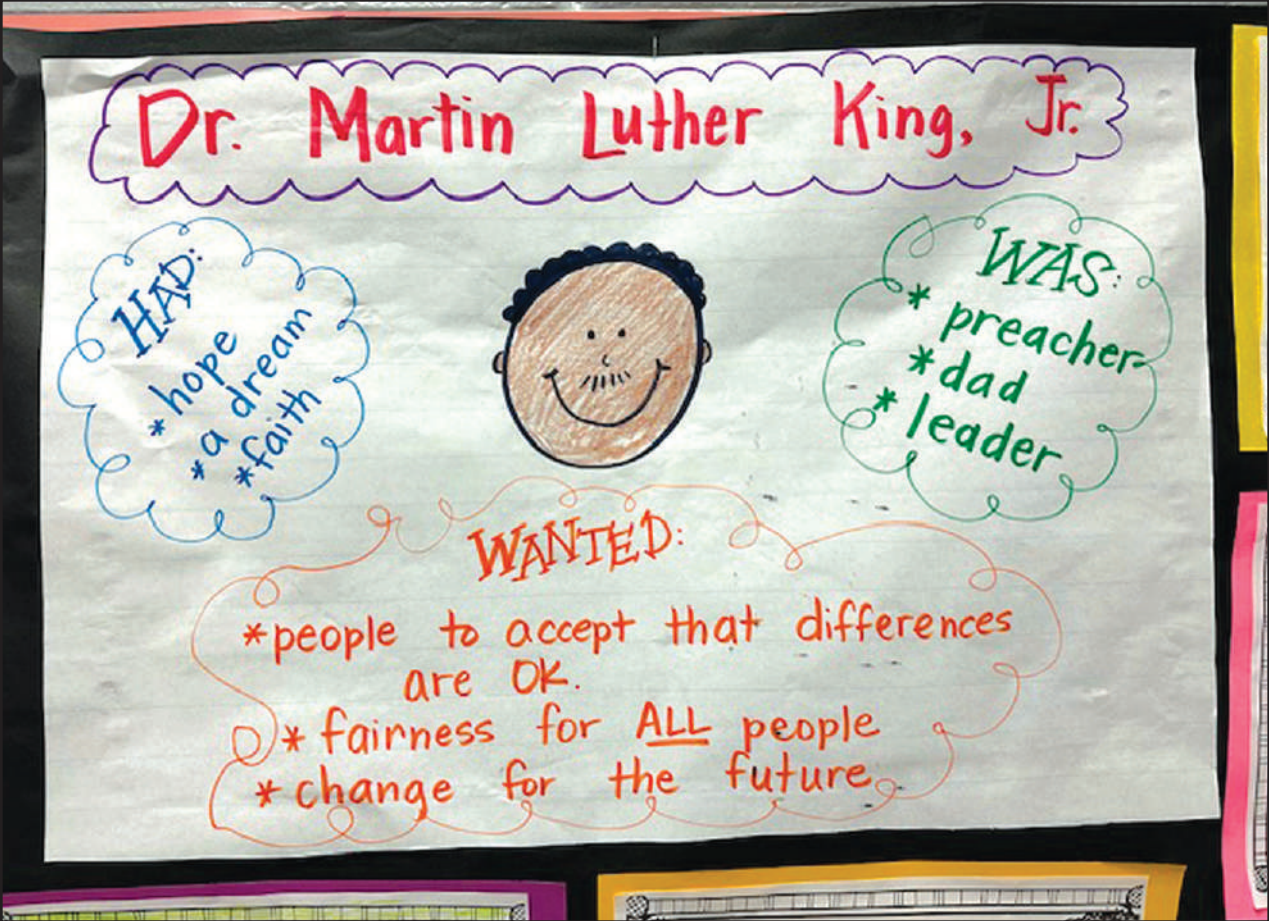 Dr. Martin Luther King, Jr.
HAD:
* hope
* a dream
* faith
WAS:
* preacher
* dad
* leader
WANTED:
* people to accept that differences
are OK.
* fairness for ALL people
* change for the future